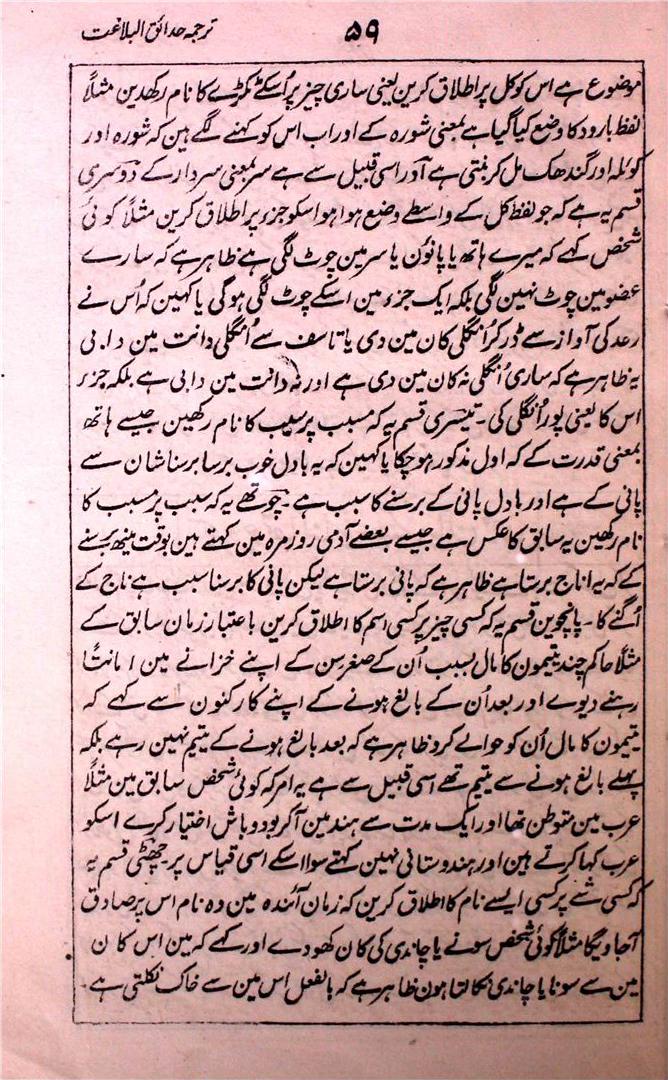 ترجمہ حدائق البلاغت
۵۹
موضوع ہے اس کو کل پر اطلاق کرین یعنی ساری چیز پر اُسکے ٹکڑے کا نام رکھدین مثلاً
لفظ بارود کا وضع کیا گیا ہے بمعنی شورہ کے اور اب اس کو کہنے لگے ہین کہ شورہ اور
کوئلہ اور گندھک مل کر بنتی ہے آور اسی قبیل سے ہے سر بمعنی سردار کے دوسری
قسم یہ ہے کہ جو لفظ کل کے واسطے وضع ہوا ہو اسکو جزء پر اطلاق کرین مثلاً کوئی
شخص کہے کہ میرے ہاتھ یا پانؤن یا سر مین چوٹ لگی ہے ظاہر ہے کہ سارے
عضو مین چوٹ نہین لگی بلکہ ایک جزء مین اسکے چوٹ لگی ہوگی یا کہین کہ اُس نے
رعد کی آواز سے ڈر کر اُنگلی کان مین دی یا تاسف سے اُنگلی دانت مین دابی
یہ ظاہر ہے کہ ساری اُنگلی نہ کان مین دی ہے اور نہ دانت مین دابی ہے بلکہ جزء
اس کا یعنی پور اُنگلی کی۔ تیسری قسم یہ کہ مسبب پر سبب کا نام رکھین جیسے ہاتھ
بمعنی قدرت کے کہ اول مذکور ہوچکا یا کہین کہ یہ بادل خوب برسا برسنا شان سے
پانی کے ہے اور بادل پانی کے برسنے کا سبب ہے۔ چوتھے یہ کہ سبب پر مسبب کا
نام رکھین یہ سابق کا عکس ہے جیسے بعضے آدمی روز مرہ مین کہتے ہین بوقت مینھ برسنے
کے کہ یہ اناج برستا ہے ظاہر ہے کہ پانی برستا ہے لیکن پانی کا برسنا سبب ہے ناج کے
اُگنے کا۔ پانچوین قسم یہ کہ کسی چیز پر کسی اسم کا اطلاق کرین باعتبار زمان سابق کے
مثلاً حاکم چند یتیمون کا مال بسبب اُن کے صغرسن کے اپنے خزانے مین امانتاً
رہنے دیوے اور بعد اُن کے بالغ ہونے کے اپنے کارکنون سے کہے کہ
یتیمون کا مال اُن کو حوالے کرو ظاہر ہے کہ بعد بالغ ہونے کے یتیم نہین رہے بلکہ
پہلے بالغ ہونے سے یتیم تھے اسی قبیل سے ہے یہ امر کہ کوئی شخص سابق مین مثلاً
عرب مین متوطن تھا اور ایک مدت سے ہند مین آکر بود و باش اختیار کرے اسکو
عرب کہا کرتے ہین اور ہندوستانی نہین کہتے سوا اسکے اسی قیاس پر۔ چھٹی قسم یہ
کہ کسی شئے پر کسی ایسے نام کا اطلاق کرین کہ زمان آئندہ مین وہ نام اس پر صادق
آجاویگا مثلاً کوئی شخص سونے یا چاندی کی کان کھودے اور کہے کہ مین اس کان
مین سے سونا یا چاندی نکالتا ہون ظاہر ہے کہ بالفعل اس مین سے خاک نکلتی ہے۔